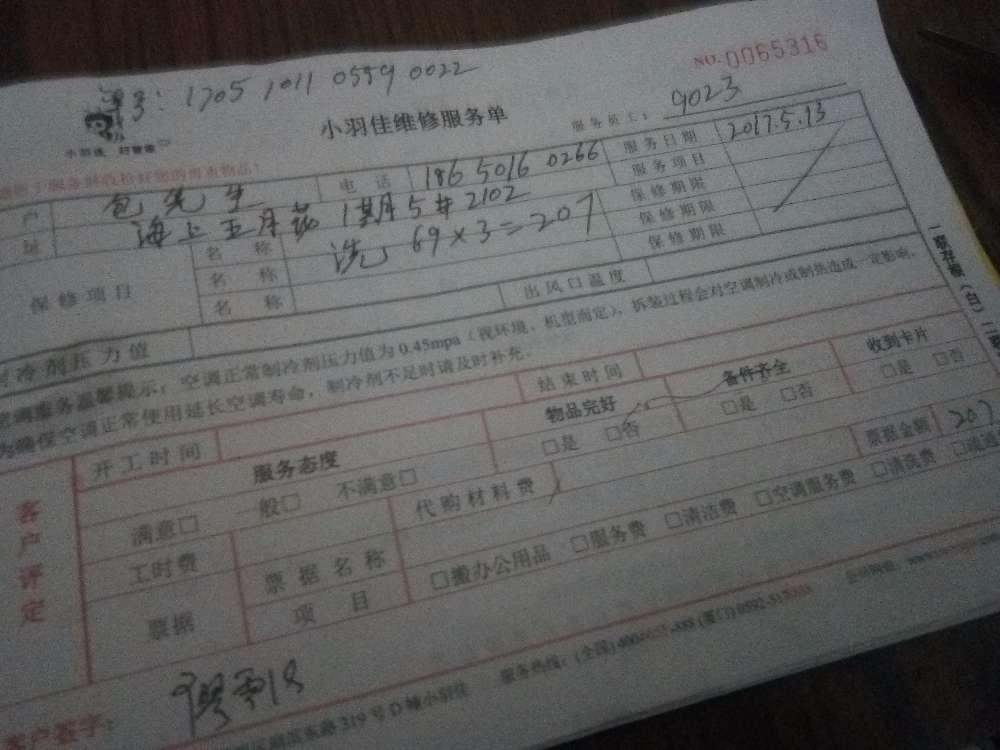 NO.0065316
单号：1705 1011 0559 0022
小羽佳维修服务单
服务员工：9023
户 包先生 电话 186 5016 0266 服务日期 2017.5.13
址 海上五月花 1期5#2102 服务项目
保修项目 名称 洗 69×3=207 保修期限
名称 保修期限
名称 保修期限
制冷剂压力值 出风口温度
空调服务温馨提示：空调正常制冷剂压力值为0.45mpa（视环境、机型而定），拆装过程会对空调制冷或制热造成一定影响，
为确保空调正常使用延长空调寿命，制冷剂不足时请及时补充。
开工时间 结束时间
客户评定 服务态度 物品完好 备件齐全 收到卡片
满意□ 一般□ 不满意□ □是 □否 □是 □否 □是 □否
工时费 代购材料费 票据金额 207
票据 票据名称
项目 □搬办公用品 □服务费 □清洁费 □空调服务费 □清洗费
客户签字：
319号D幢小羽佳 服务热线：(全国)
一联存根（白）二联